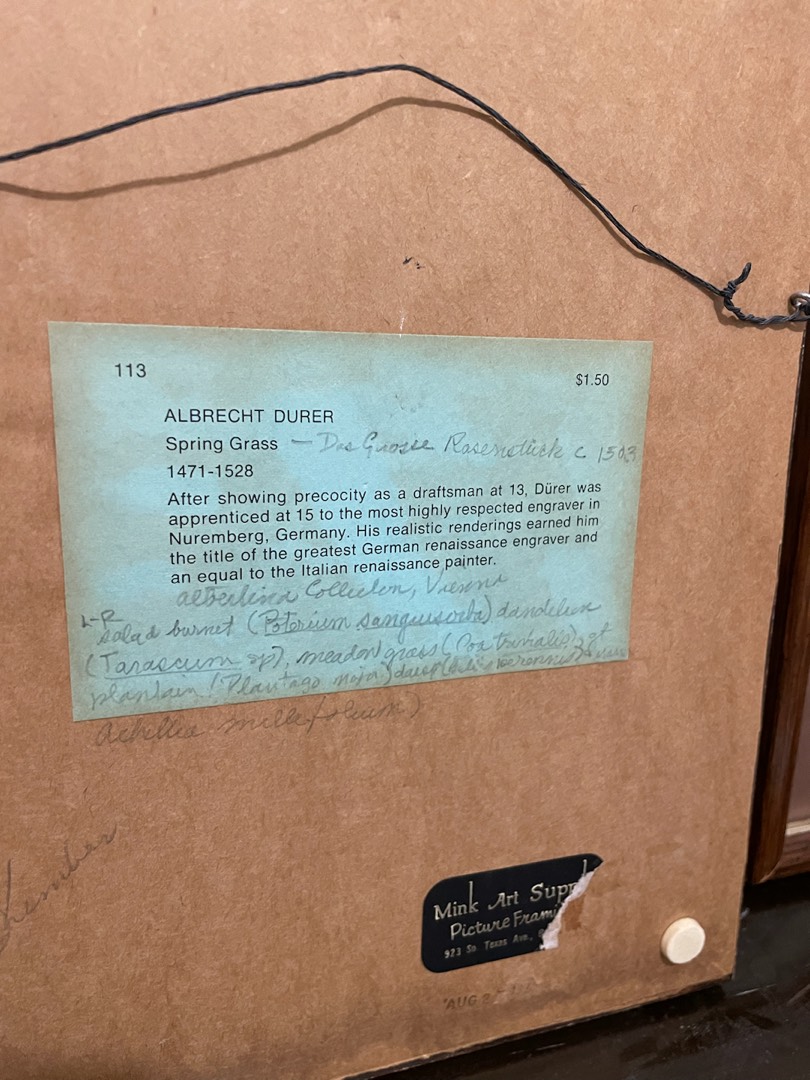 113
$1.50
ALBRECHT DURER
Spring Grass — Das Grosse Rasenstück c 1503
1471-1528
After showing precocity as a draftsman at 13, Dürer was
apprenticed at 15 to the most highly respected engraver in
Nuremberg, Germany. His realistic renderings earned him
the title of the greatest German renaissance engraver and
an equal to the Italian renaissance painter.
Albertina Collection, Vienna
L-R
salad burnet (Poterium sanguisorba) dandelion
(Taraxcum sp), meadow grass (Poa trivialis), gt
plantain (Plantago major) daisy
Achillea millefolium)
Mink Art Supp
Picture Frami
923 So. Texas Ave.,
AUG